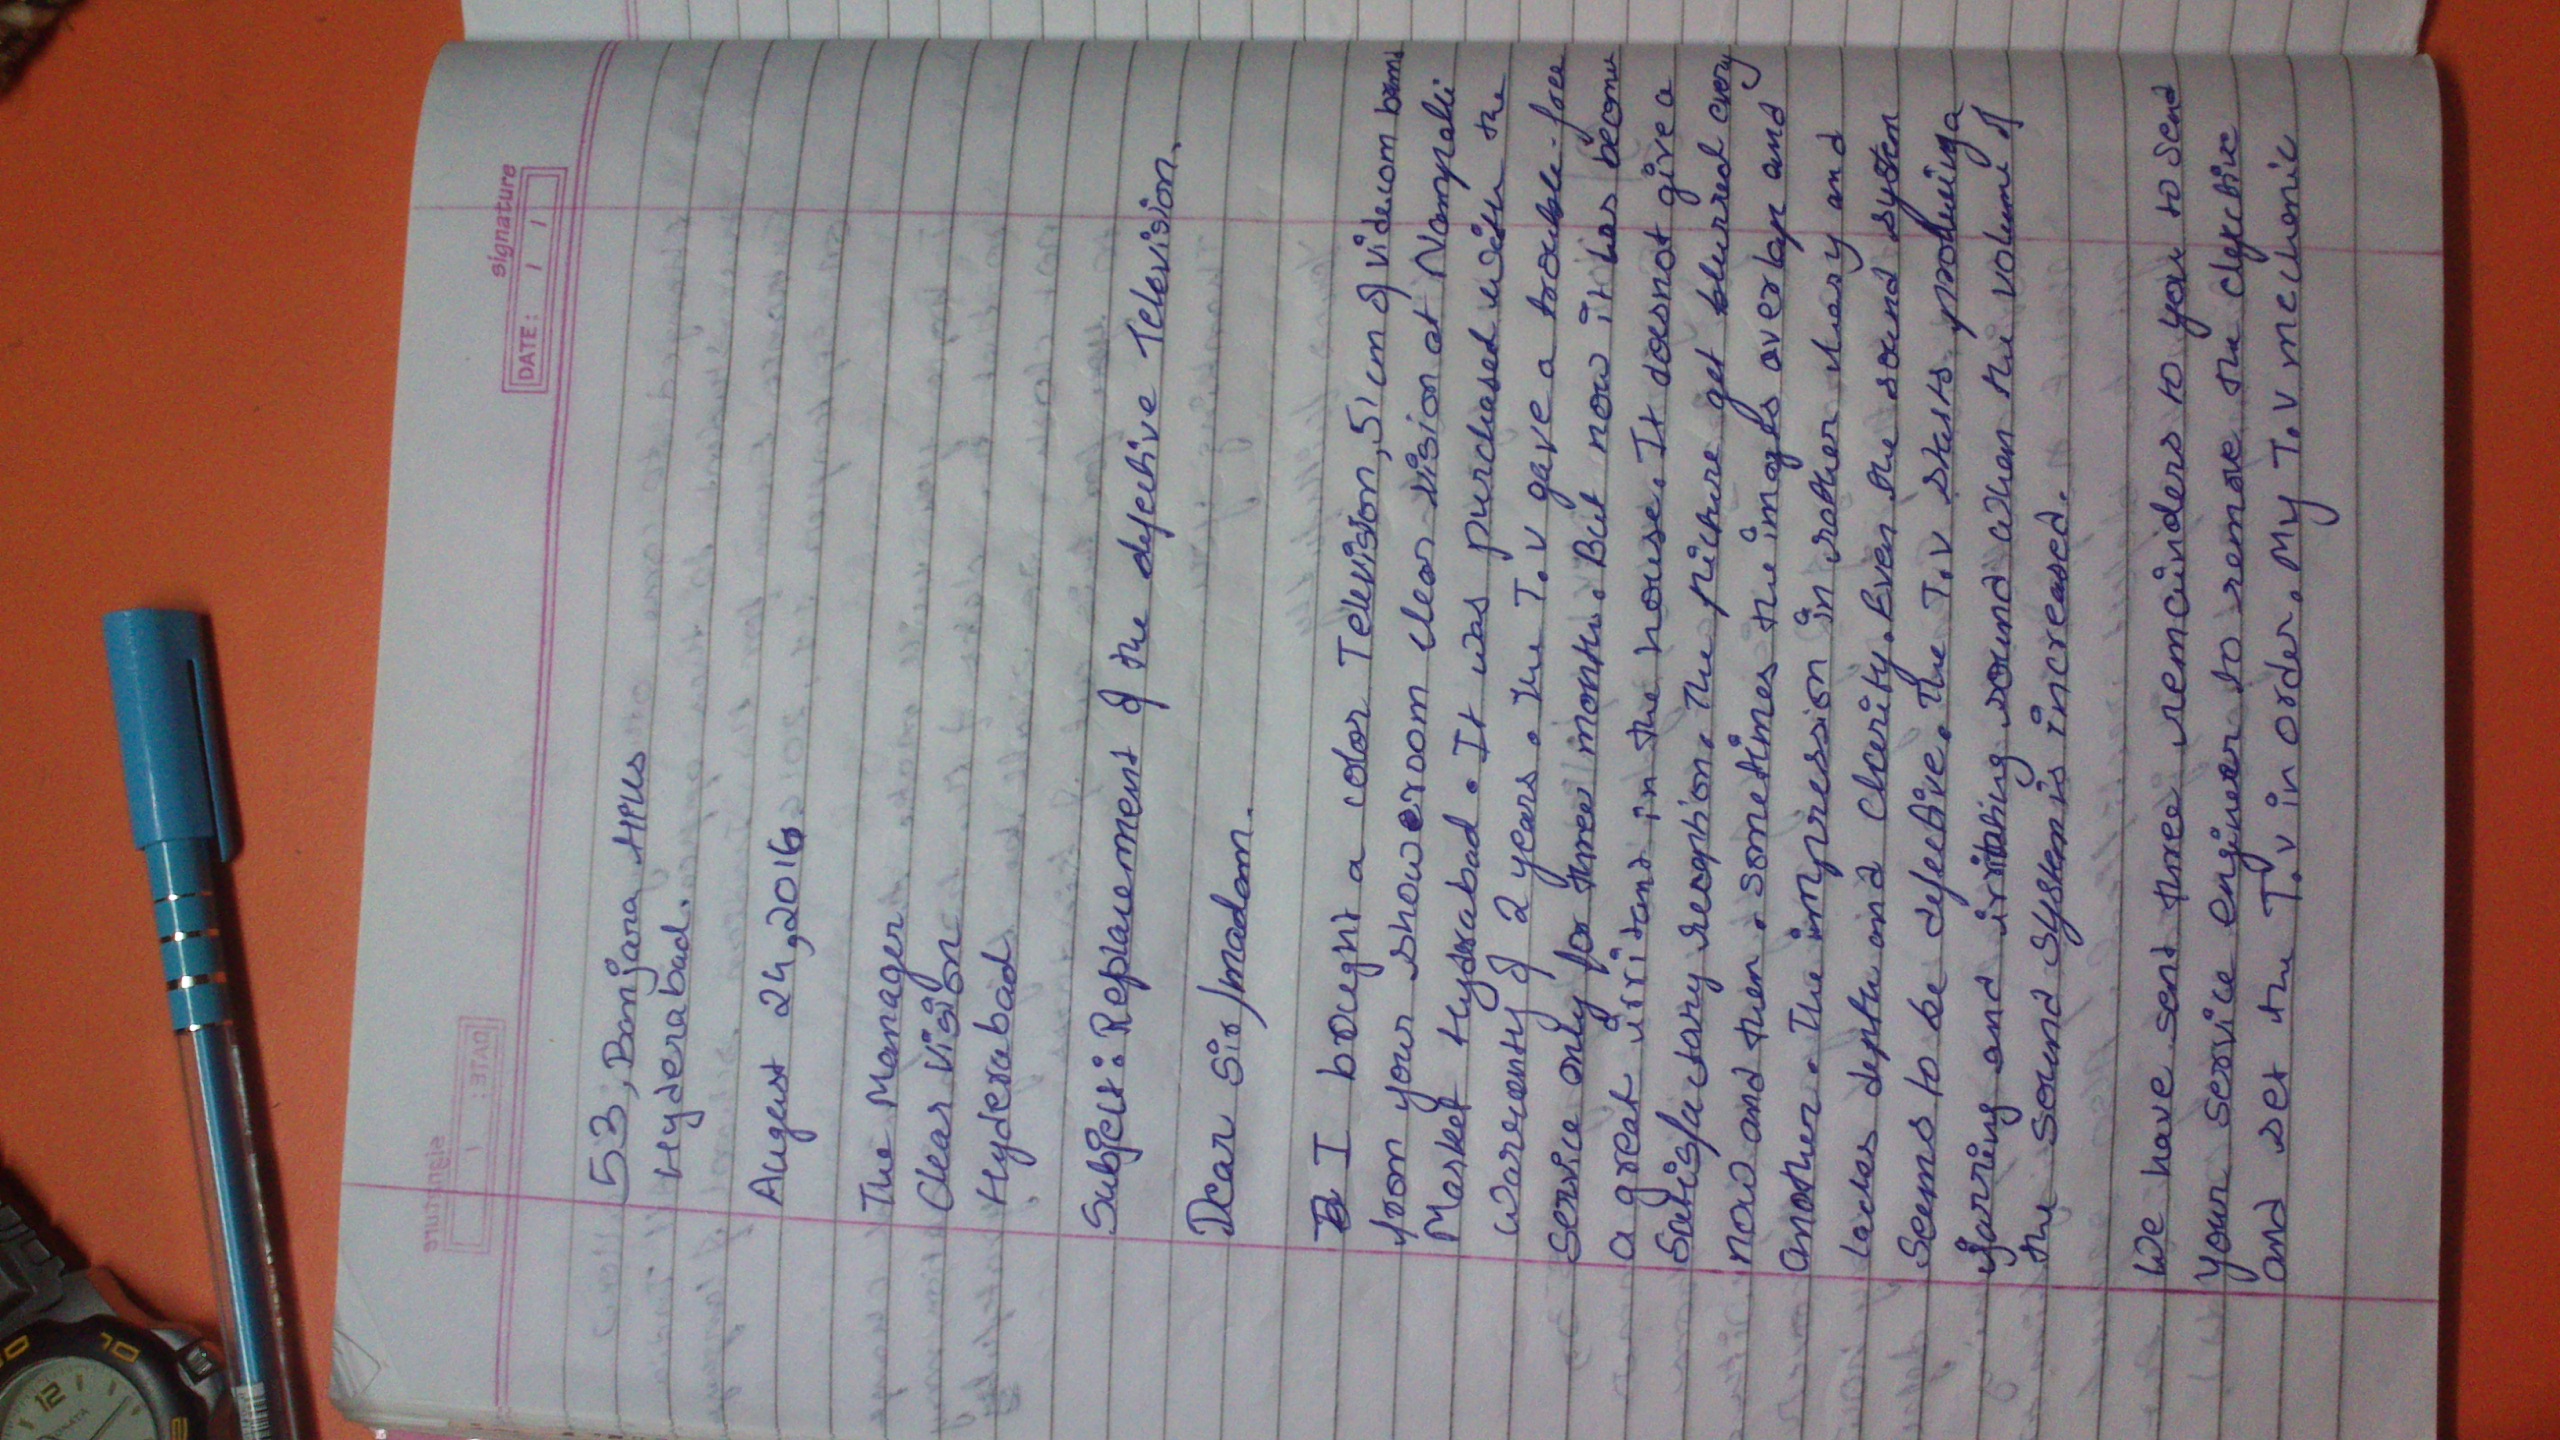 signature
DATE: / /
53, Banjara Hills
Hyderabad.
August 24, 2016
The Manager
Clear Vision
Hyderabad
Subject: Replacement of the defective Television.
Dear Sir/madam.
I bought a color Television, 51 cm of videcom brand
from your showeroom clear vision at Nampalli
Market Hyderabad. It was purchased with the
warranty of 2 years. The T.V gave a trouble-free
service only for three months. But now it has become
a great irritant in the house. It doesnot give a
Satisfactary reception. The picture get blurred every
now and then. sometimes the images overlap and
another. The impression in rather hasy and
lackes depth and clarity. Even the sound system
Seems to be defective. The T.V starts producing a
jarring and irritating sound when the volume of
the sound system is increased.
We have sent three remainders to you to send
your service engineer to remove the defective
and set the T.V in order. My T.V mechanic
12
SONATA